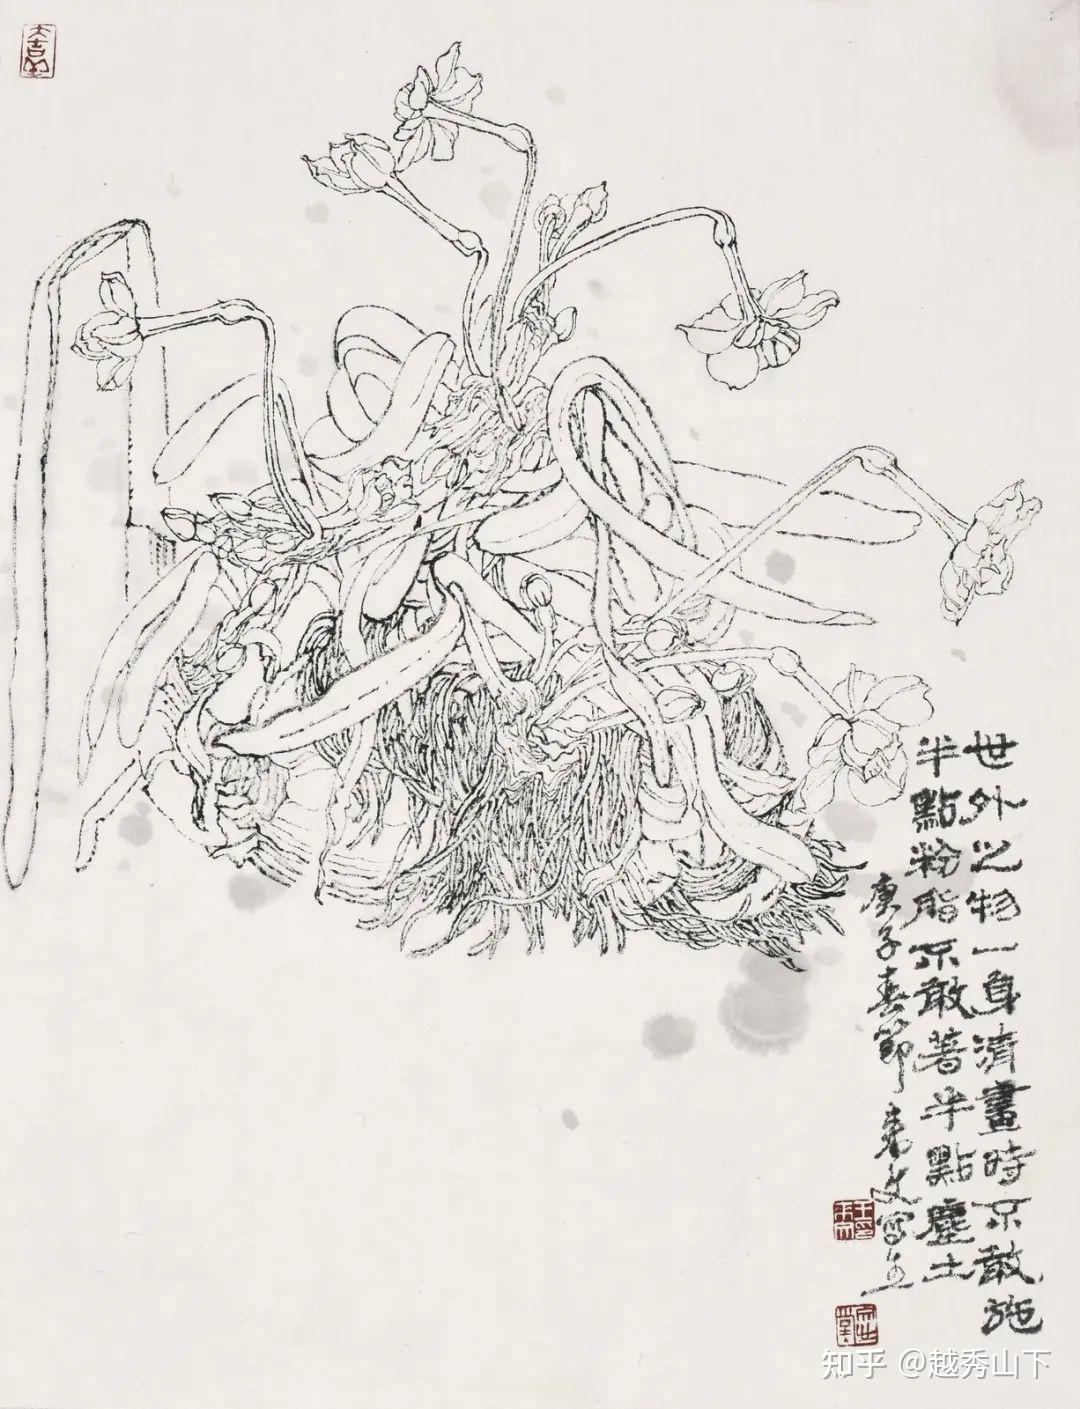 世外之物一身清畫時不敢施
半點粉脂不敢著半點塵土
庚子春節來文寫
知乎 @越秀山下